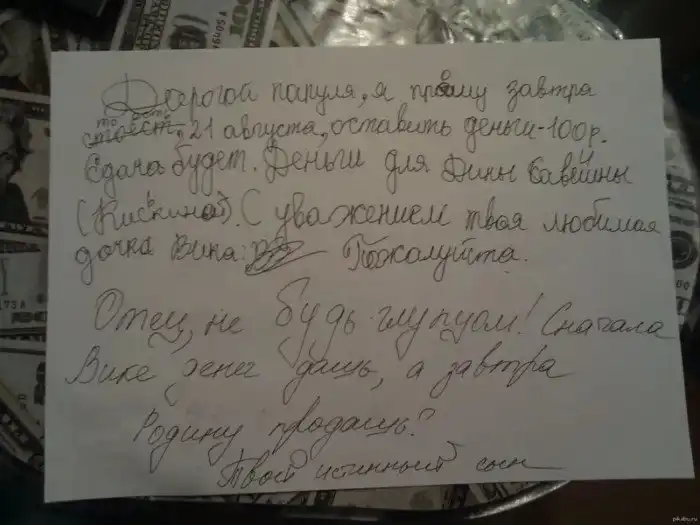 Дорогой папуля, я прошу завтра
то есть, 21 августа, оставить деньги-100р.
Сдача будет. Деньги для Дины
(Кискиной). С уважением твоя любимая
дочка Вика. Пожалуйста.
Отец, не будь глупцом! Сначала
Вике денег дашь, а завтра
Родину продашь?
Твой истинный сын
pikabu.ru